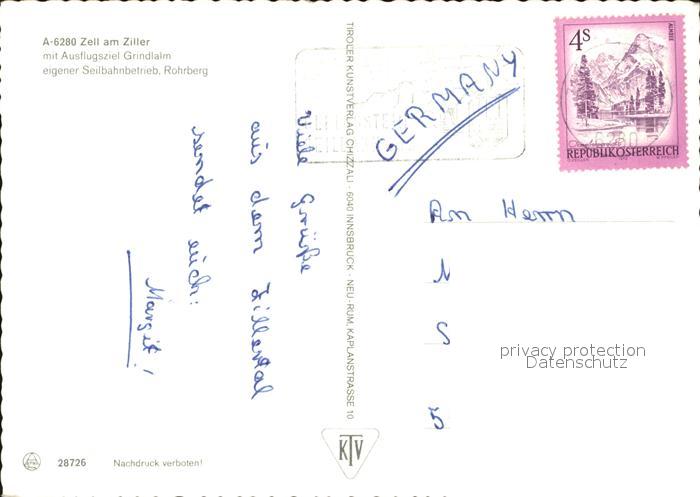 A-6280 Zell am Ziller
mit Ausflugsziel Grindlalm
eigener Seilbahnbetrieb, Rohrberg
Viele Grüße
aus dem Zillertal
sendet euch:
Margit!
TIROLER KUNSTVERLAG CHIZZALI · 6040 INNSBRUCK - NEU-RUM, KAPLANSTRASSE 10
KTV
GERMANY
4S
ALMSEE
REPUBLIK ÖSTERREICH
An Herrn
N
S
5
privacy protection
Datenschutz
28726 Nachdruck verboten!